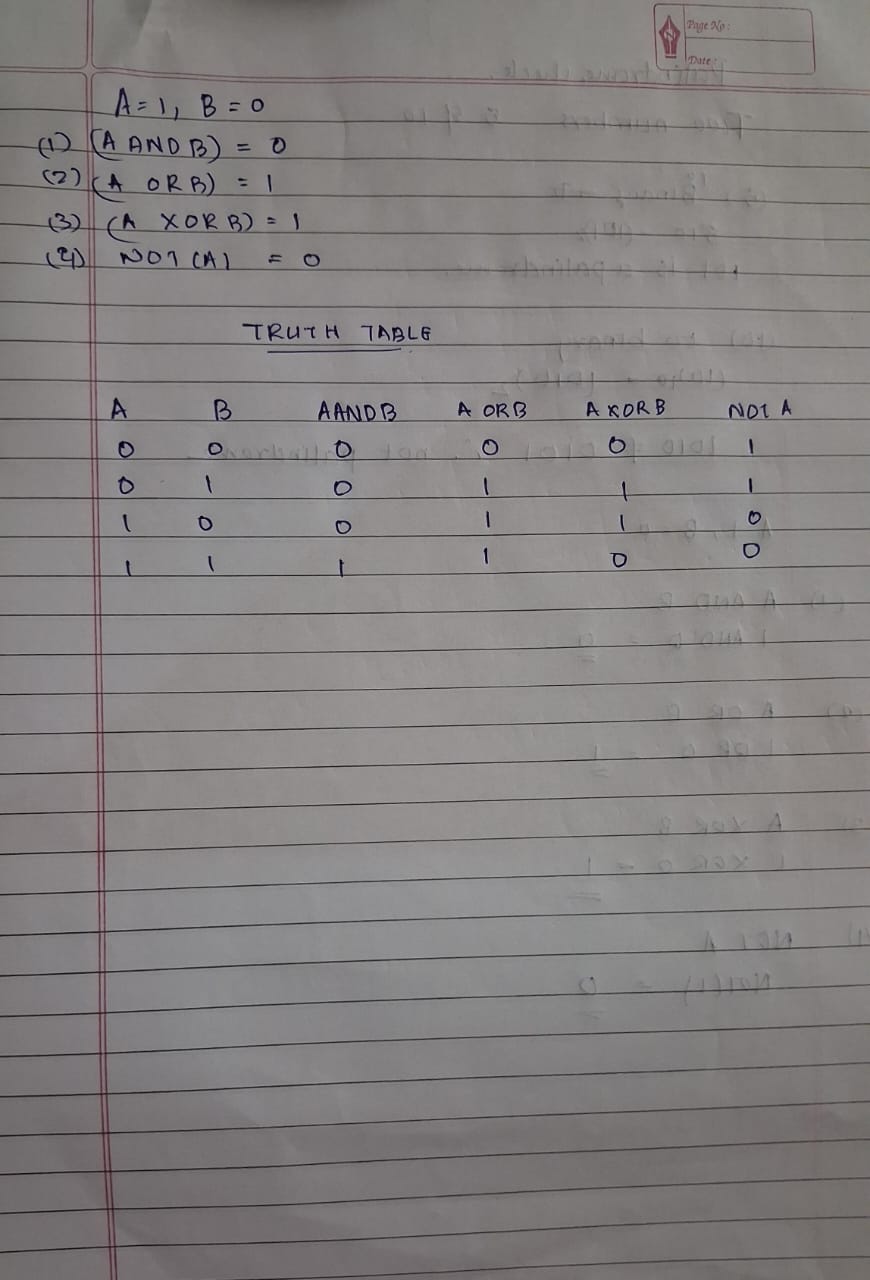 Page No:
Date:
A = 1, B = 0
(1) (A AND B) = 0
(2) (A OR B) = 1
(3) (A XOR B) = 1
(4) NOT (A) = 0
TRUTH TABLE
A B A AND B A OR B A XOR B NOT A
0 0 0 0 0 1
0 1 0 1 1 1
1 0 0 1 1 0
1 1 1 1 0 0